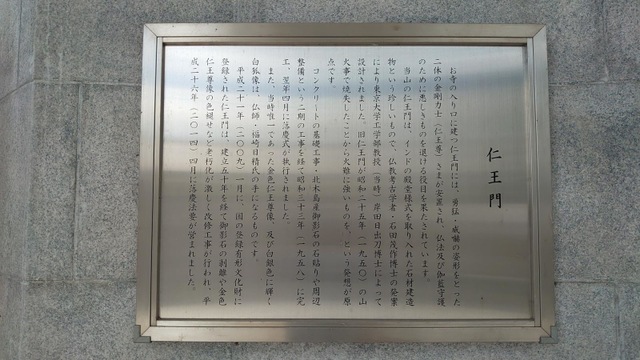 仁王門
お寺の入り口に建つ仁王門には、勇猛・威嚇の姿形をとった
二体の金剛力士(仁王尊)さまが安置され、仏法及び伽藍守護
のために悪しきものを退ける役目を果たされています。
当山の仁王門は、インドの殿堂様式を取り入れた石材建造
物という珍しいもので、仏教考古学者・石田茂作博士の発案
により東京大学工学部教授(当時)岸田日出刀博士によって
設計されました。旧仁王門が昭和二十五年(一九五〇)の山
火事で焼失したことから火難に強いものを、という発想が原
点です。
コンクリートの基礎工事・北木島産御影石の石貼りや周辺
整備という二期の工事を経て昭和三十三年(一九五八)に完
工、翌年四月に落慶式が執行されました。
また、当時唯一であった金色仁王尊像、及び白銀色に輝く
白狐像は、仏師・福崎日精氏の手になるものです。
平成二十一年(二〇〇九)一月に、国の登録有形文化財に
登録された仁王門は、建立五十年を経て御影石の剥離や金色
仁王尊像の色褪せなど老朽化が激しく改修工事が行われ、平
成二十六年(二〇一四)四月に落慶法要が営まれました。